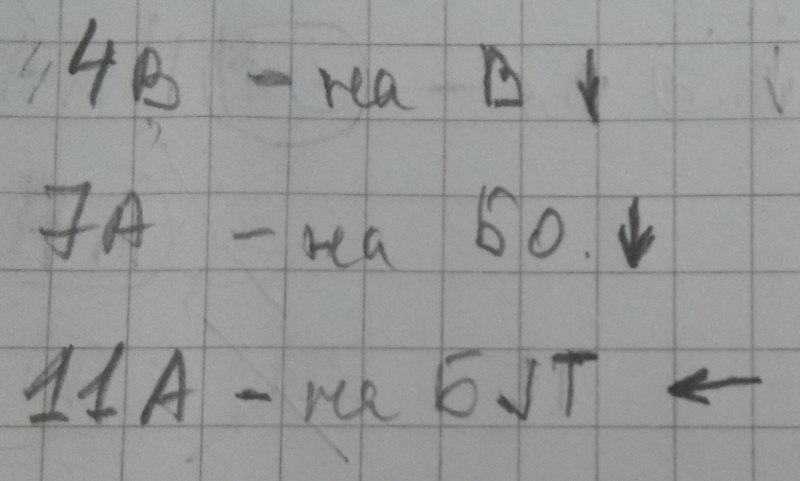 4В - на В ↓
7А - на БО. ↓
11А - на Б√Т ←